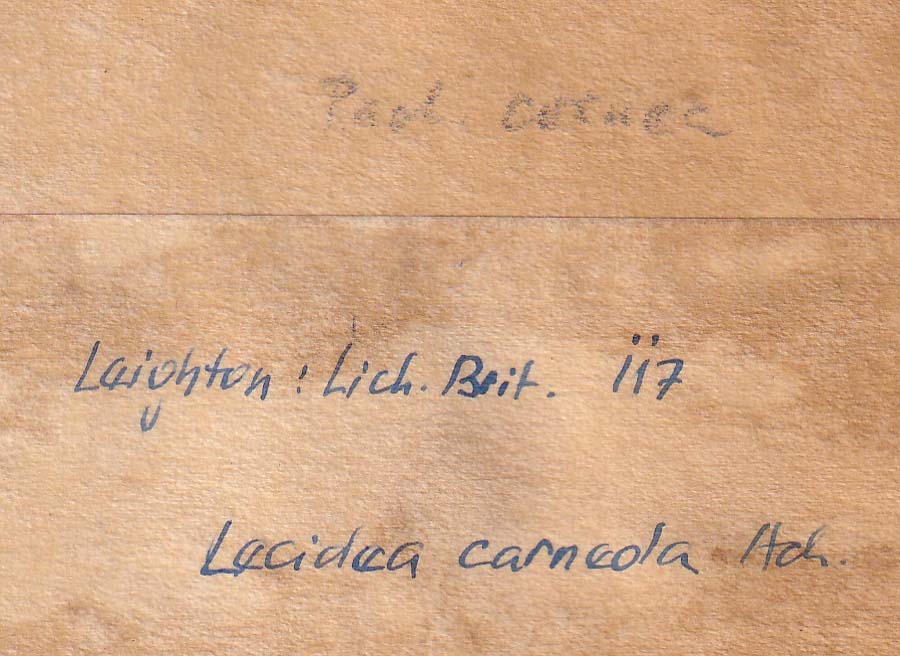 Pach. cornea
Leighton : Lich. Brit. 117
Lecidea carneola Ach.